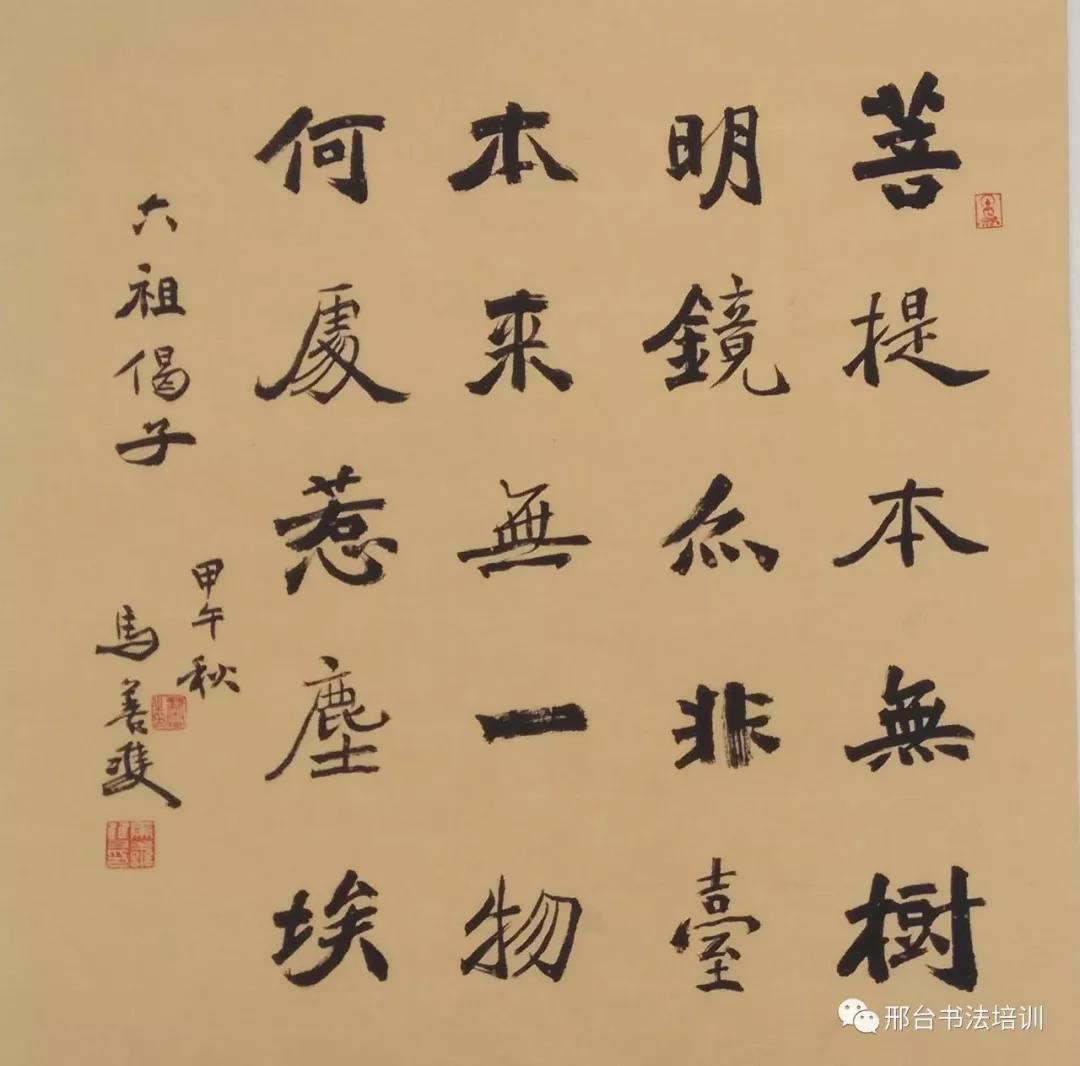 菩提本無樹
明鏡亦非臺
本來無一物
何處惹塵埃
六祖偈子
甲午秋
馬善雙
邢台书法培训